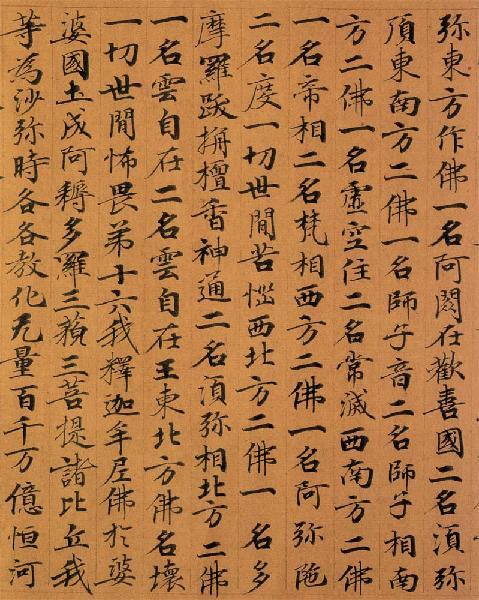 弥東方作佛一名阿閦在歡喜國二名湏弥
頂東南方二佛一名師子音二名師子相南
方二佛一名虛空住二名常滅西南方二佛
一名帝相二名梵相西方二佛一名阿弥陁
二名度一切世間苦惱西北方二佛一名多
摩羅跋栴檀香神通二名湏弥相北方二佛
一名雲自在二名雲自在王東北方佛名壞
一切世間怖畏弟十六我釋迦牟尼佛於娑
婆國土成阿耨多羅三藐三菩提諸比丘我
等為沙弥時各各教化无量百千万億恒河